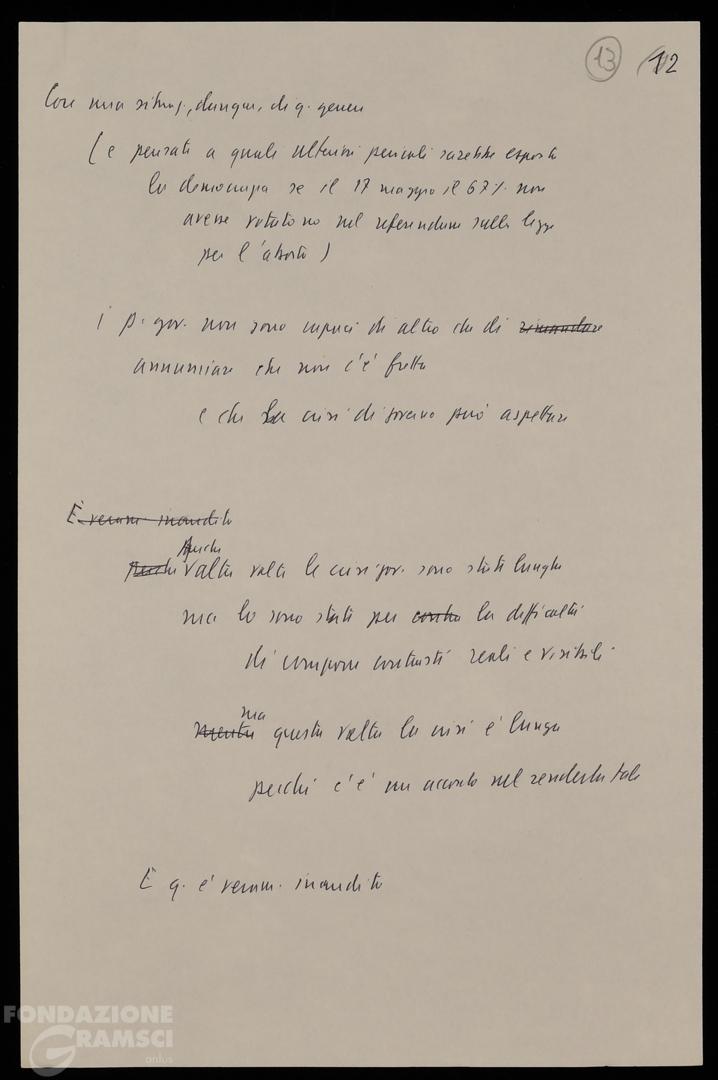 13 12
Con una situaz., dunque, di q. genere
(e pensate a quali ulteriori pericoli sarebbe esposta
la democrazia se il 17 maggio il 67% non
avesse votato no nel referendum sulla legge
per l'aborto)
i p. gov. non sono capaci di altro che di rimandare
annunciare che non c'è fretta
e che la crisi di governo può aspettare
È veram. inaudito
Anche
perché altre volte le crisi gov. sono state lunghe
ma lo sono state per contra la difficoltà
di comporre contrasti reali e visibili.
ma
mentre questa volta la crisi è lunga
perché c'è un accordo nel renderla tale
E q. è veram. inaudito
FONDAZIONE
GRAMSCI
onlus